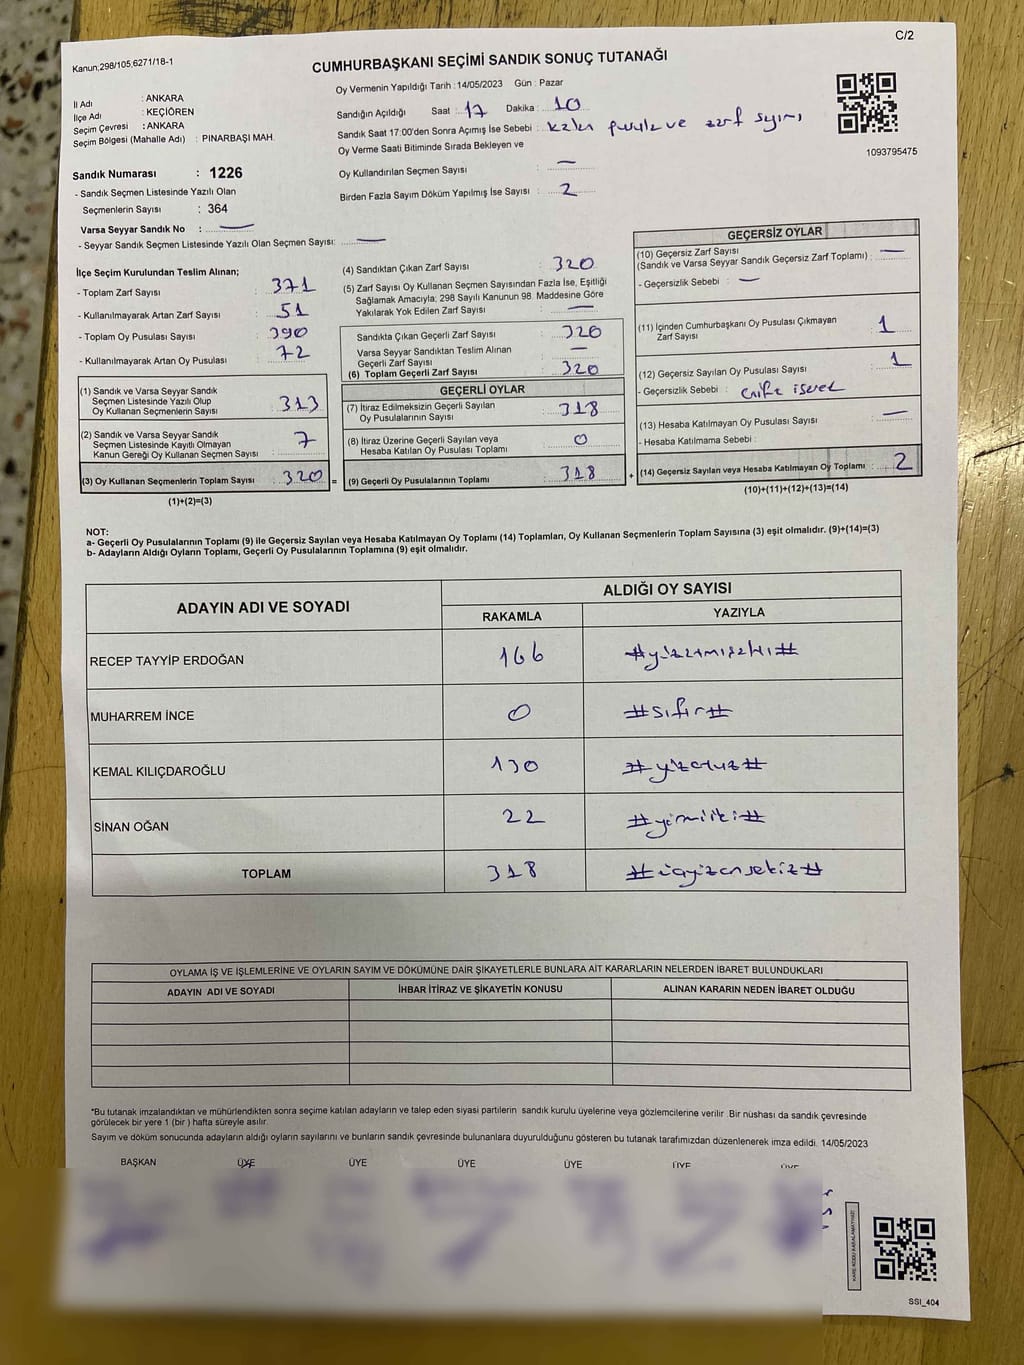 C/2
Kanun;298/105;6271/18-1
CUMHURBAŞKANI SEÇİMİ SANDIK SONUÇ TUTANAĞI
Oy Vermenin Yapıldığı Tarih : 14/05/2023 Gün : Pazar
İl Adı : ANKARA
İlçe Adı : KEÇİÖREN
Seçim Çevresi : ANKARA
Seçim Bölgesi (Mahalle Adı) : PINARBAŞI MAH.
Sandığın Açıldığı Saat : 17 Dakika : 10
Sandık Saat 17:00'den Sonra Açımış İse Sebebi : kalan pusula ve zarf sayımı
Oy Verme Saati Bitiminde Sırada Bekleyen ve
Oy Kullandırılan Seçmen Sayısı : —
Birden Fazla Sayım Döküm Yapılmış İse Sayısı : 2
1093795475
Sandık Numarası : 1226
- Sandık Seçmen Listesinde Yazılı Olan
Seçmenlerin Sayısı : 364
Varsa Seyyar Sandık No : —
- Seyyar Sandık Seçmen Listesinde Yazılı Olan Seçmen Sayısı: —
İlçe Seçim Kurulundan Teslim Alınan;
- Toplam Zarf Sayısı : 371
- Kullanılmayarak Artan Zarf Sayısı : 51
- Toplam Oy Pusulası Sayısı : 390
- Kullanılmayarak Artan Oy Pusulası : 72
(1) Sandık ve Varsa Seyyar Sandık
Seçmen Listesinde Yazılı Olup
Oy Kullanan Seçmenlerin Sayısı : 313
(2) Sandık ve Varsa Seyyar Sandık
Seçmen Listesinde Kayıtlı Olmayan
Kanun Gereği Oy Kullanan Seçmen Sayısı : 7
(3) Oy Kullanan Seçmenlerin Toplam Sayısı : 320 =
(1)+(2)=(3)
(4) Sandıktan Çıkan Zarf Sayısı : 320
(5) Zarf Sayısı Oy Kullanan Seçmen Sayısından Fazla İse, Eşitliği
Sağlamak Amacıyla; 298 Sayılı Kanunun 98. Maddesine Göre
Yakılarak Yok Edilen Zarf Sayısı : —
Sandıkta Çıkan Geçerli Zarf Sayısı : 320
Varsa Seyyar Sandıktan Teslim Alınan
Geçerli Zarf Sayısı : —
(6) Toplam Geçerli Zarf Sayısı : 320
GEÇERLİ OYLAR
(7) İtiraz Edilmeksizin Geçerli Sayılan
Oy Pusulalarının Sayısı : 318
(8) İtiraz Üzerine Geçerli Sayılan veya
Hesaba Katılan Oy Pusulası Toplamı : 0
(9) Geçerli Oy Pusulalarının Toplamı : 318 +
GEÇERSİZ OYLAR
(10) Geçersiz Zarf Sayısı
(Sandık ve Varsa Seyyar Sandık Geçersiz Zarf Toplamı) : —
- Geçersizlik Sebebi : —
(11) İçinden Cumhurbaşkanı Oy Pusulası Çıkmayan
Zarf Sayısı : 1
(12) Geçersiz Sayılan Oy Pusulası Sayısı : 1
- Geçersizlik Sebebi : çifte işaret
(13) Hesaba Katılmayan Oy Pusulası Sayısı : —
- Hesaba Katılmama Sebebi :
(14) Geçersiz Sayılan veya Hesaba Katılmayan Oy Toplamı : 2
(10)+(11)+(12)+(13)=(14)
NOT:
a- Geçerli Oy Pusulalarının Toplamı (9) ile Geçersiz Sayılan veya Hesaba Katılmayan Oy Toplamı (14) Toplamları, Oy Kullanan Seçmenlerin Toplam Sayısına (3) eşit olmalıdır. (9)+(14)=(3)
b- Adayların Aldığı Oyların Toplamı, Geçerli Oy Pusulalarının Toplamına (9) eşit olmalıdır.
ADAYIN ADI VE SOYADI ALDIĞI OY SAYISI
RAKAMLA YAZIYLA
RECEP TAYYİP ERDOĞAN 166 #yüzatmışaltı#
MUHARREM İNCE 0 #sıfır#
KEMAL KILIÇDAROĞLU 130 #yüzotuz#
SİNAN OĞAN 22 #yirmiiki#
TOPLAM 318 #üçyüzonsekiz#
OYLAMA İŞ VE İŞLEMLERİNE VE OYLARIN SAYIM VE DÖKÜMÜNE DAİR ŞİKAYETLERLE BUNLARA AİT KARARLARIN NELERDEN İBARET BULUNDUKLARI
ADAYIN ADI VE SOYADI İHBAR İTİRAZ VE ŞİKAYETİN KONUSU ALINAN KARARIN NEDEN İBARET OLDUĞU
*Bu tutanak imzalandıktan ve mühürlendikten sonra seçime katılan adayların ve talep eden siyasi partilerin sandık kurulu üyelerine veya gözlemcilerine verilir. Bir nüshası da sandık çevresinde
görülecek bir yere 1 (bir ) hafta süreyle asılır.
Sayım ve döküm sonucunda adayların aldığı oyların sayılarını ve bunların sandık çevresinde bulunanlara duyurulduğunu gösteren bu tutanak tarafımızdan düzenlenerek imza edildi. 14/05/2023
BAŞKAN ÜYE ÜYE ÜYE ÜYE ÜYE ÜYE
SSI_404